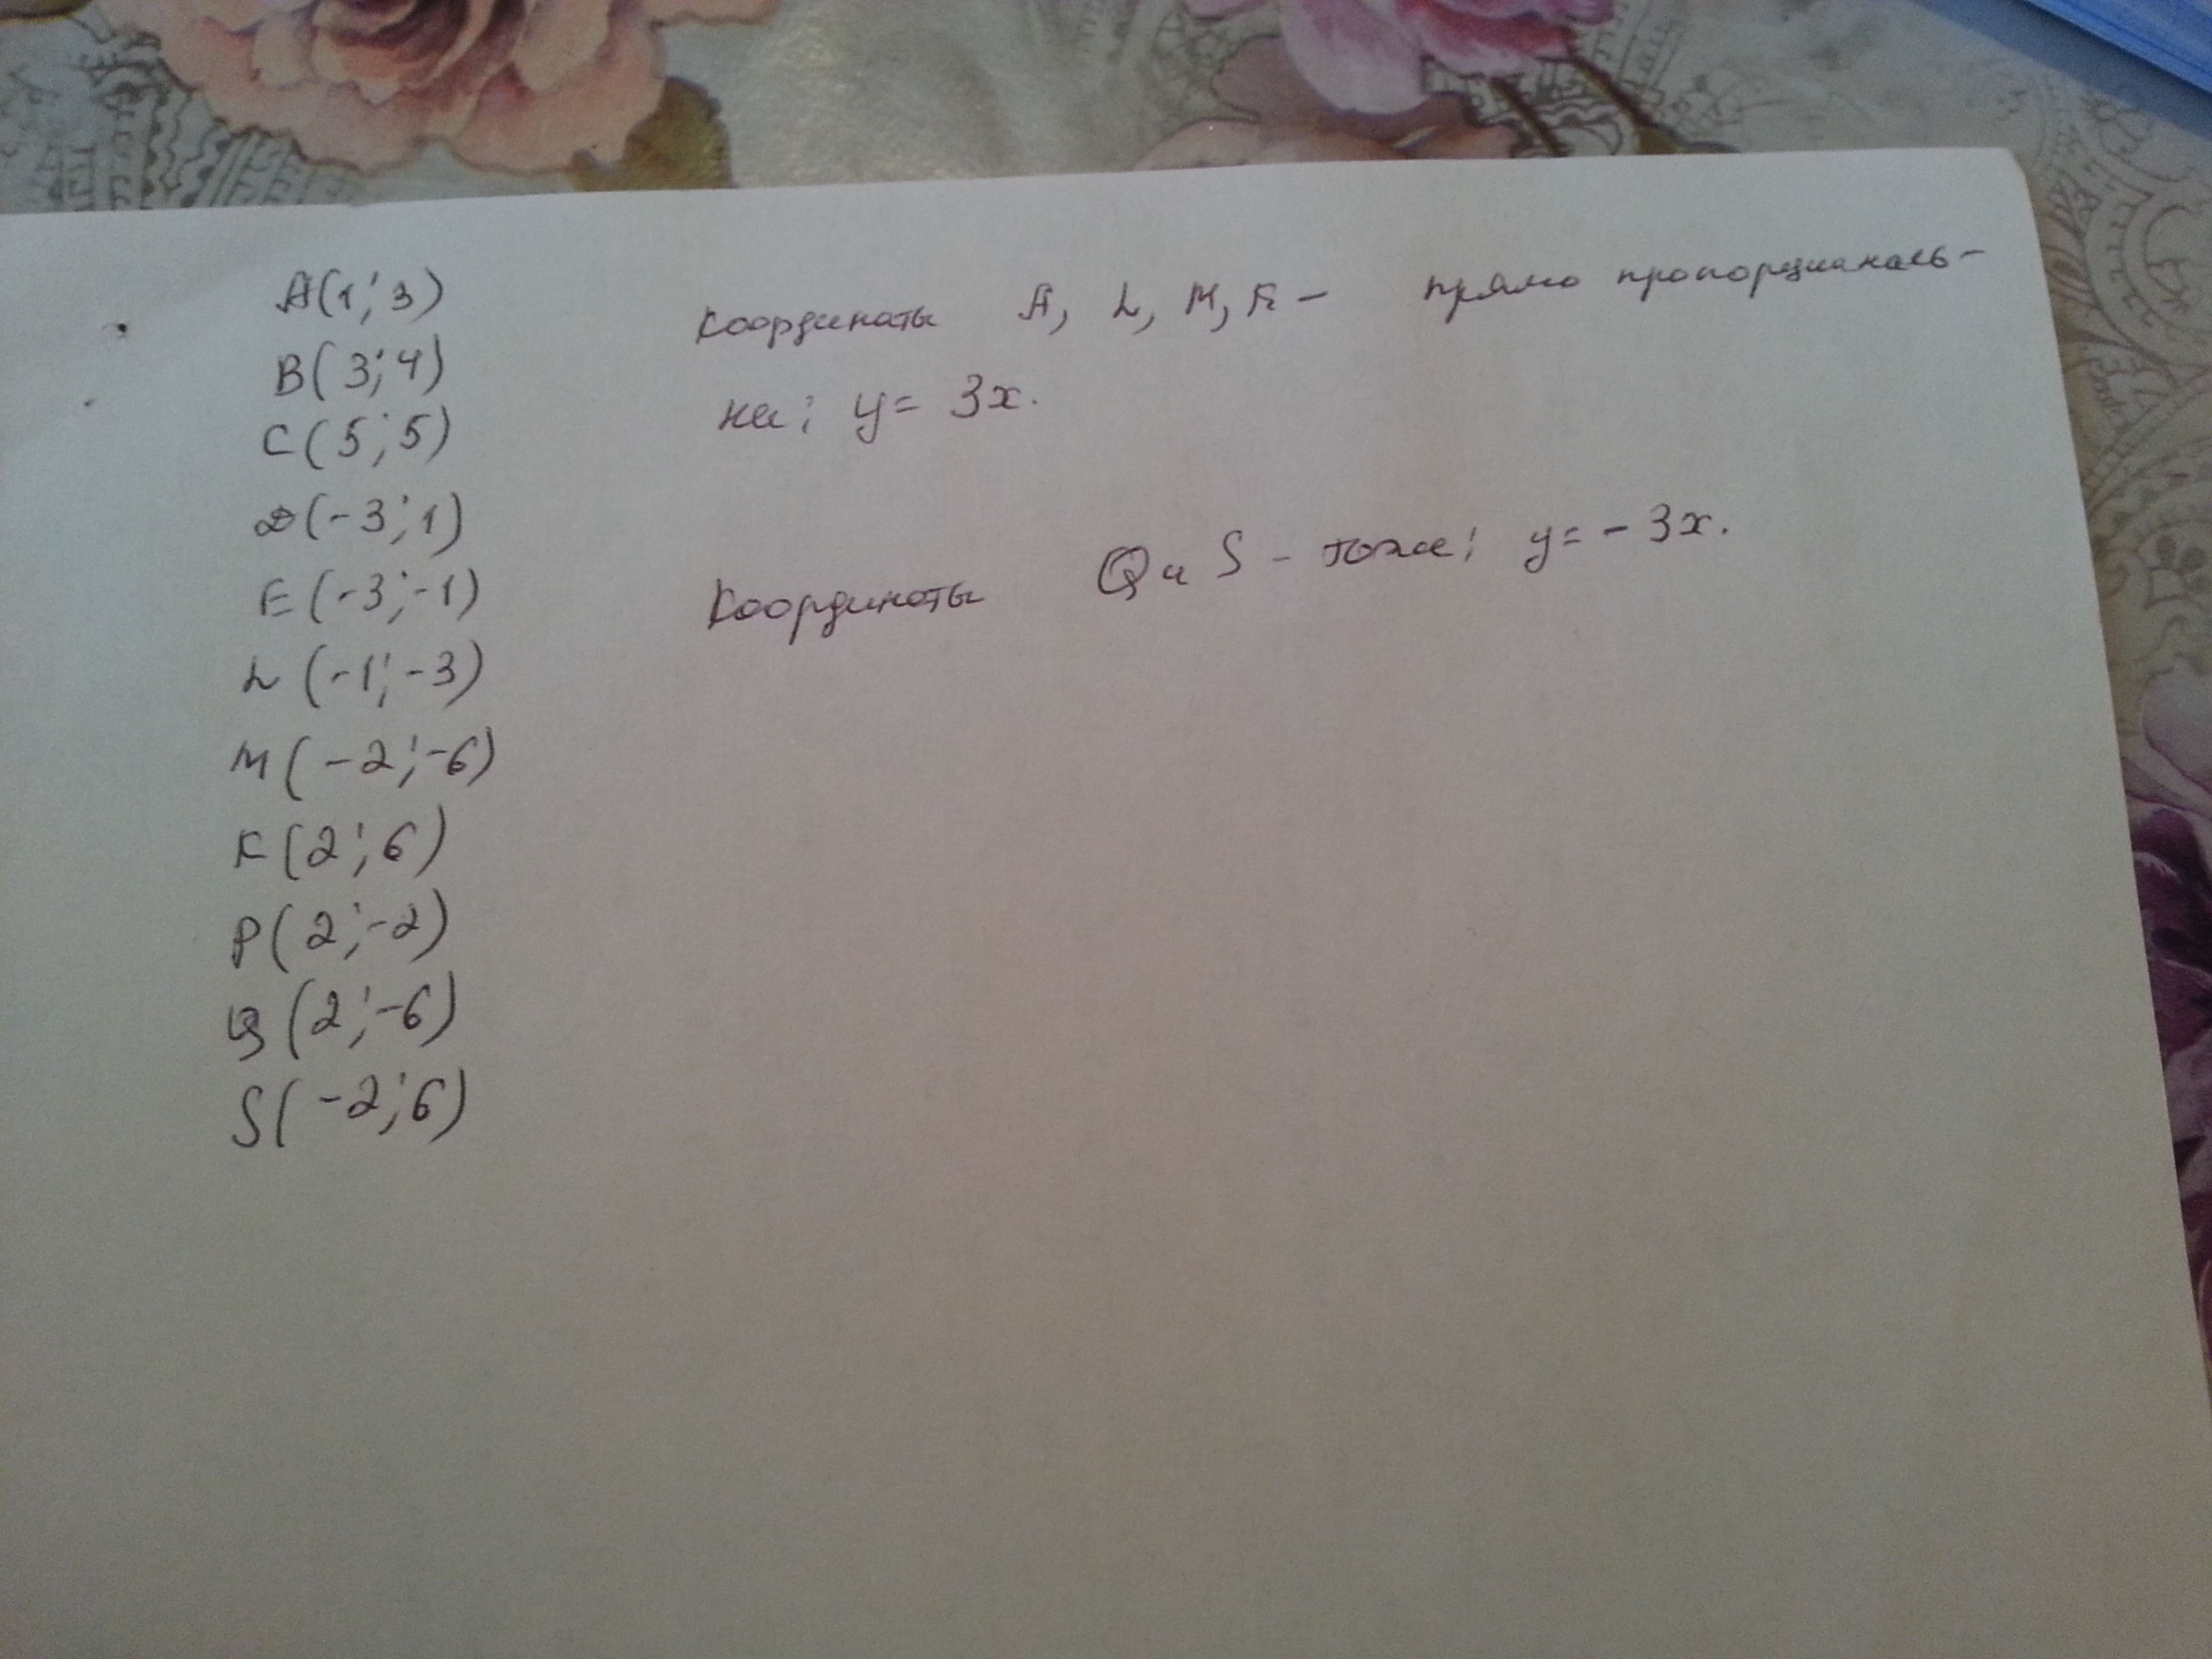 A(1; 3)
B(3; 4)
C(5; 5)
D(-3; 1)
E(-3; -1)
L(-1; -3)
M(-2; -6)
K(2; 6)
P(2; -2)
Q(2; -6)
S(-2; 6)
Координаты A, L, M, K - прямо пропорциональ-
ны; y = 3x.
Координаты Q и S - тоже; y = - 3x.